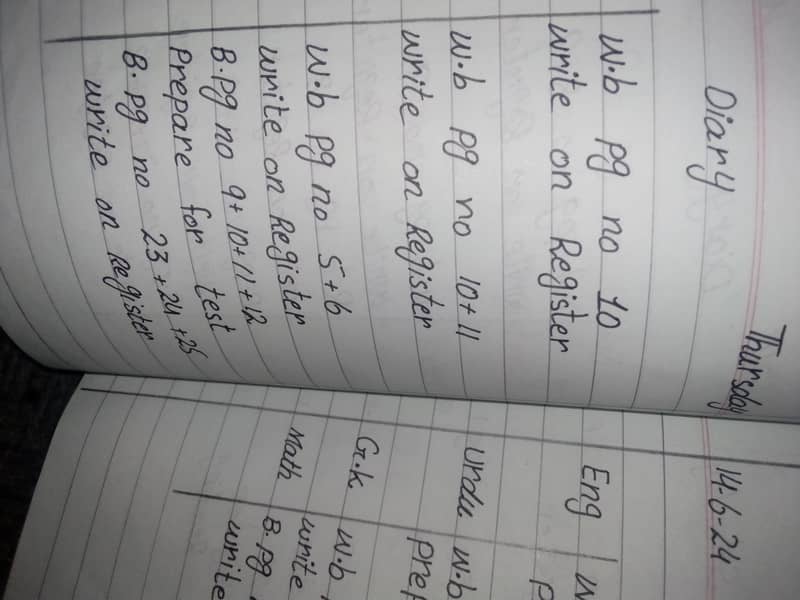 Diary
Thursday
W.b pg no 10
write on Register
W.b pg no 10+11
write on Register
W.b pg no 5+6
write on Register
B.pg no 9+10+11+12
Prepare for test
B.pg no 23+24+25
write on register
14-6-24
Eng W
P
Urdu W.b
Prep
G.k W.b
write
Math B.pg
write